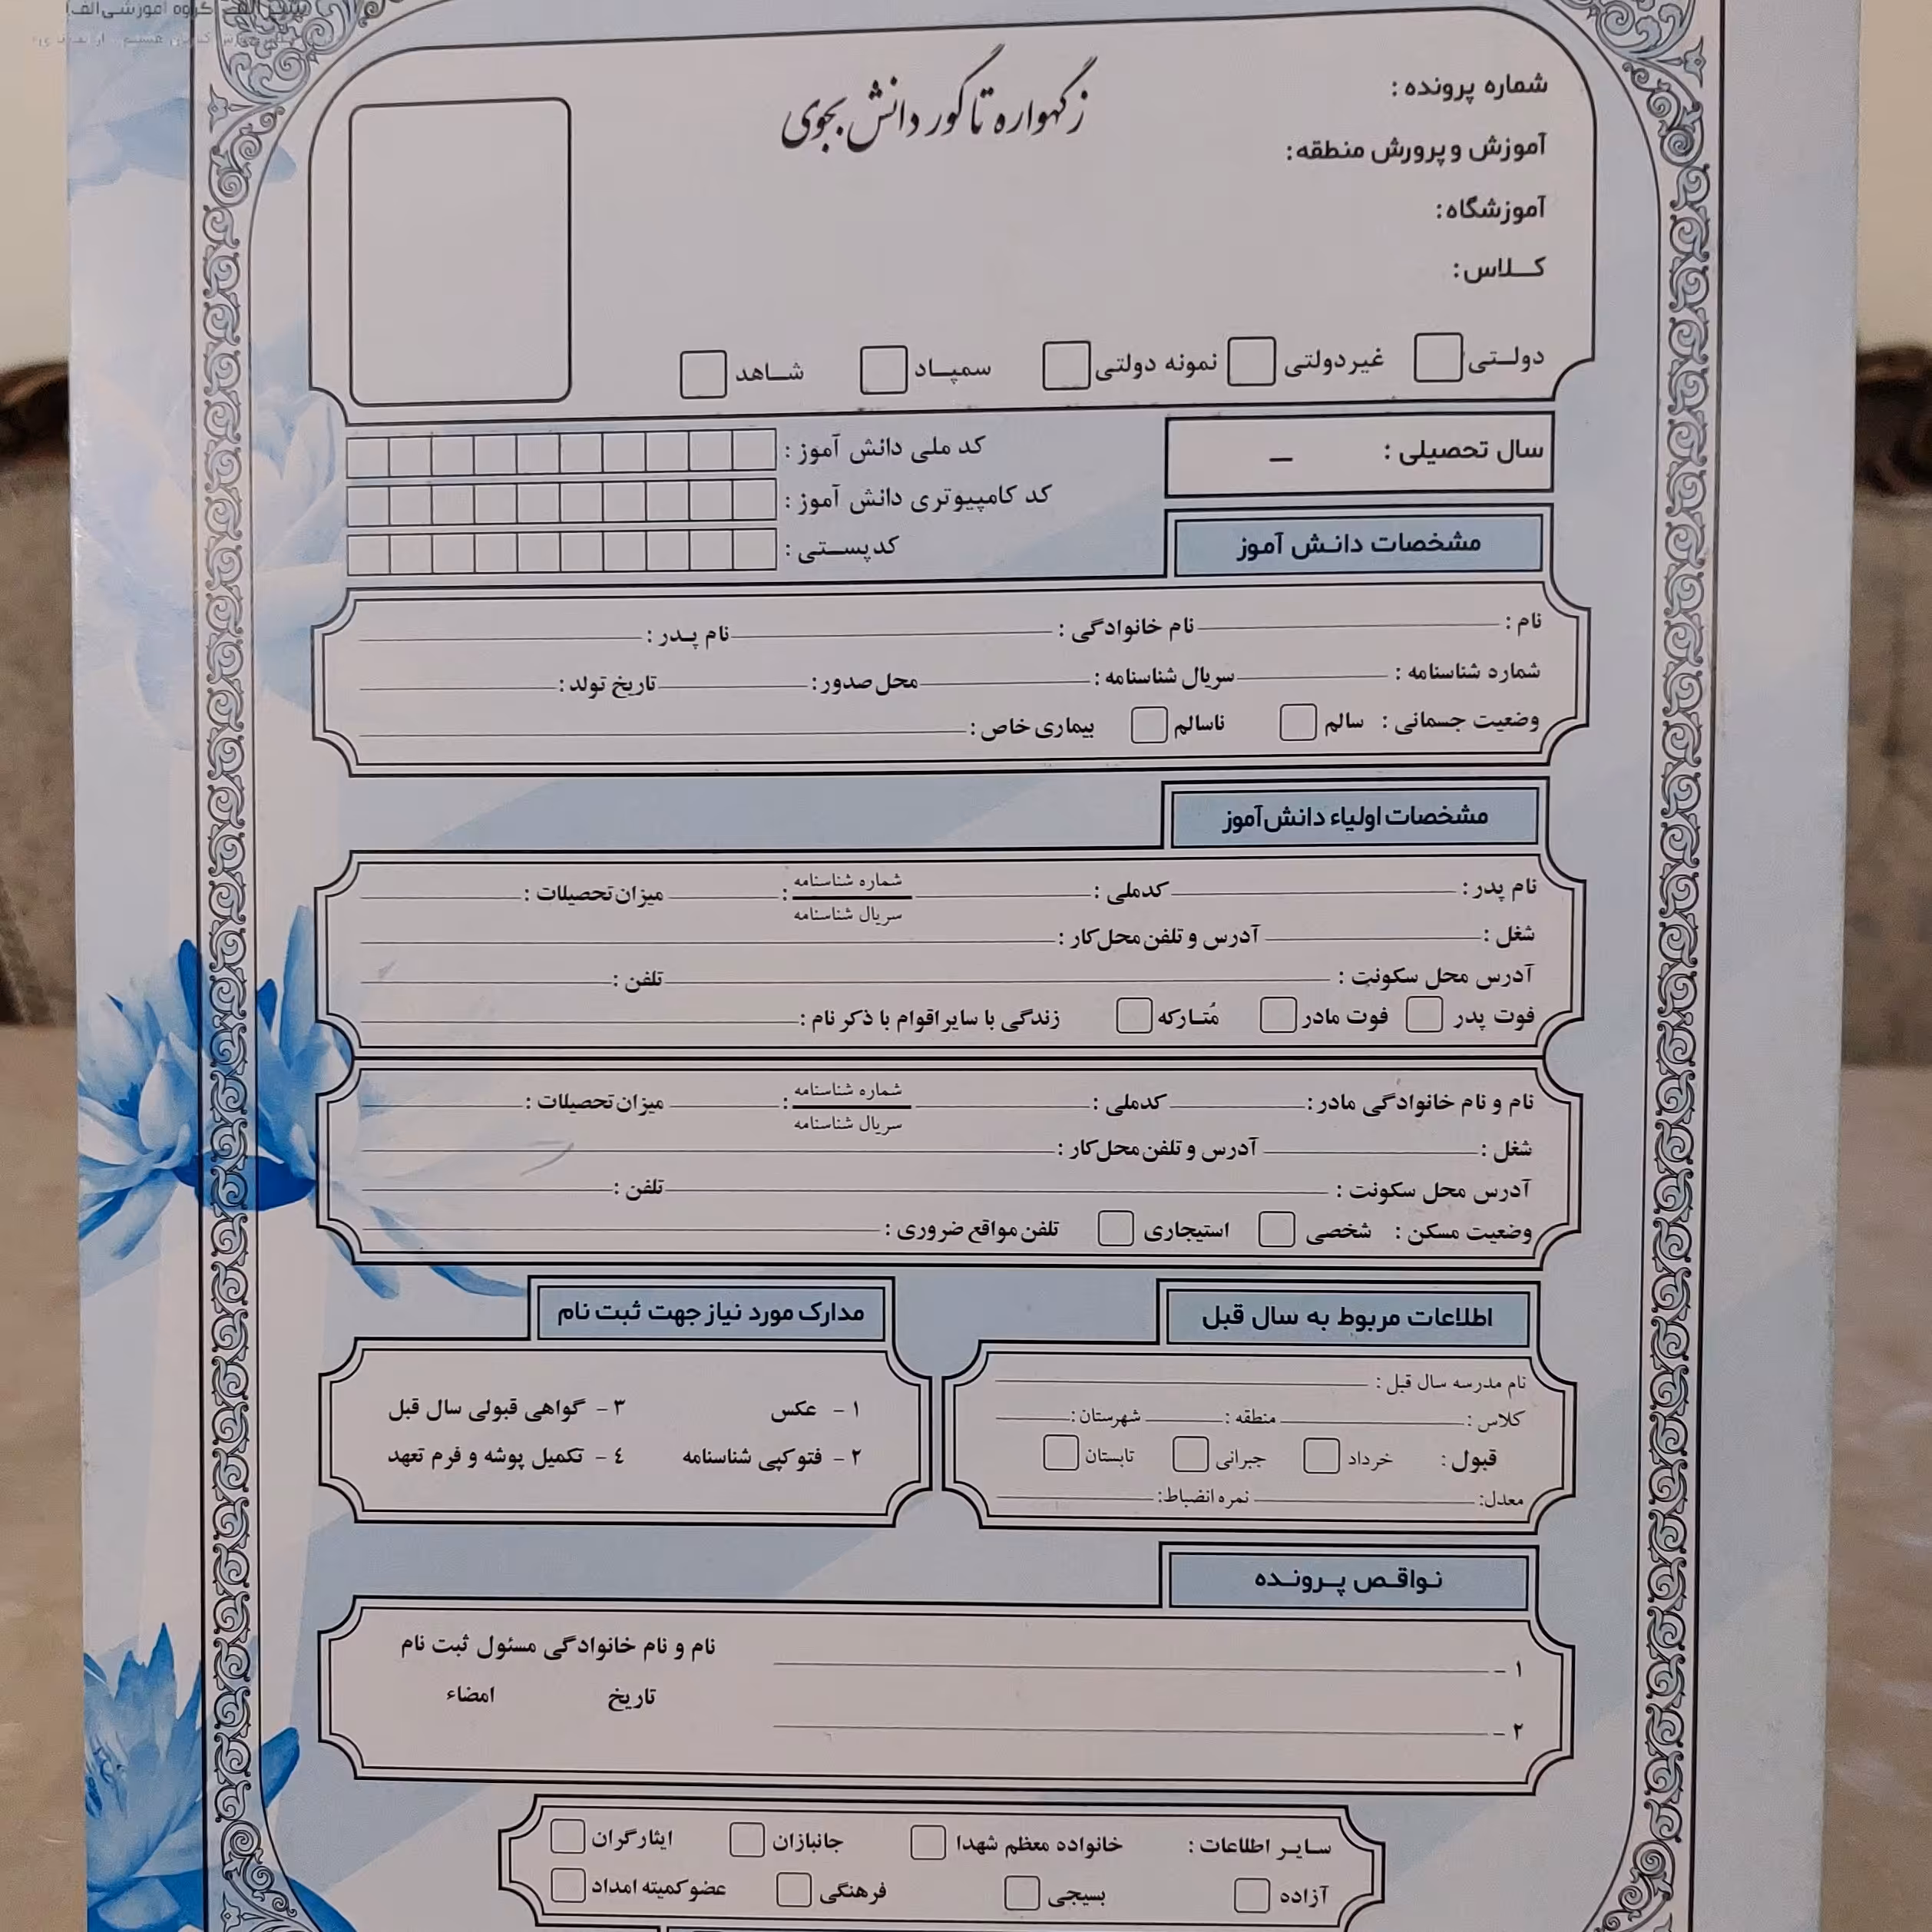 شماره پرونده :
زگهواره تا گور دانش بجوی
آموزش و پرورش منطقه:
آموزشگاه:
کــلاس:
دولــتی غیردولتی نمونه دولتی سمپــاد شــاهد
سال تحصیلی : –
کد ملی دانش آموز :
کد کامپیوتری دانش آموز :
کدپستــی :
مشخصات دانش آموز
نام : نام خانوادگی : نام پــدر :
شمارد شناسنامه : سریال شناسنامه : محل صدور : تاریخ تولد :
وضعیت جسمانی : سالم ناسالم بیماری خاص :
مشخصات اولیاء دانش‌آموز
نام پدر : کدملی : شماره شناسنامه : میزان تحصیلات :
سریال شناسنامه
شغل : آدرس و تلفن محل‌کار :
آدرس محل سکونت : تلفن :
فوت پدر فوت مادر مُتــارکه زندگی با سایر اقوام با ذکر نام :
نام و نام خانوادگی مادر : کدملی : شماره شناسنامه : میزان تحصیلات :
سریال شناسنامه
شغل : آدرس و تلفن محل‌کار :
آدرس محل سکونت : تلفن :
وضعیت مسکن : شخصی استیجاری تلفن مواقع ضروری :
اطلاعات مربوط به سال قبل
نام مدرسه سال قبل :
کلاس : منطقه : شهرستان :
قبول : خرداد جبرانی تابستان
معدل: نمره انضباط:
مدارک مورد نیاز جهت ثبت نام
۱ - عکس ۳ - گواهی قبولی سال قبل
۲ - فتوکپی شناسنامه ٤ - تکمیل پوشه و فرم تعهد
نواقـص پــرونـده
۱ -
۲ -
نام و نام خانوادگی مسئول ثبت نام
تاریخ امضاء
سـایـر اطلاعات : خانواده معظم شهدا جانبازان ایثارگران
آزاده بسیجی فرهنگی عضو کمیته امداد